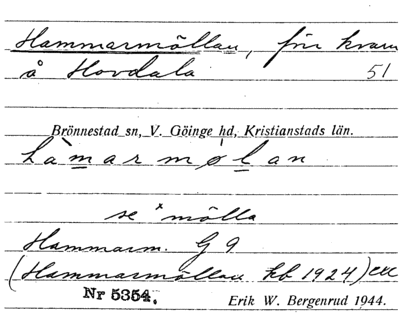 Hammarmöllan, förr kvarn
å Hovdala 51
Brönnestad sn, V. Göinge hd, Kristianstads län.
hàmarmølan
se *mölla
Hammarm. G 9
(Hammarmöllan kb 1924)
Nr 5354.
Erik W. Bergenrud 1944.